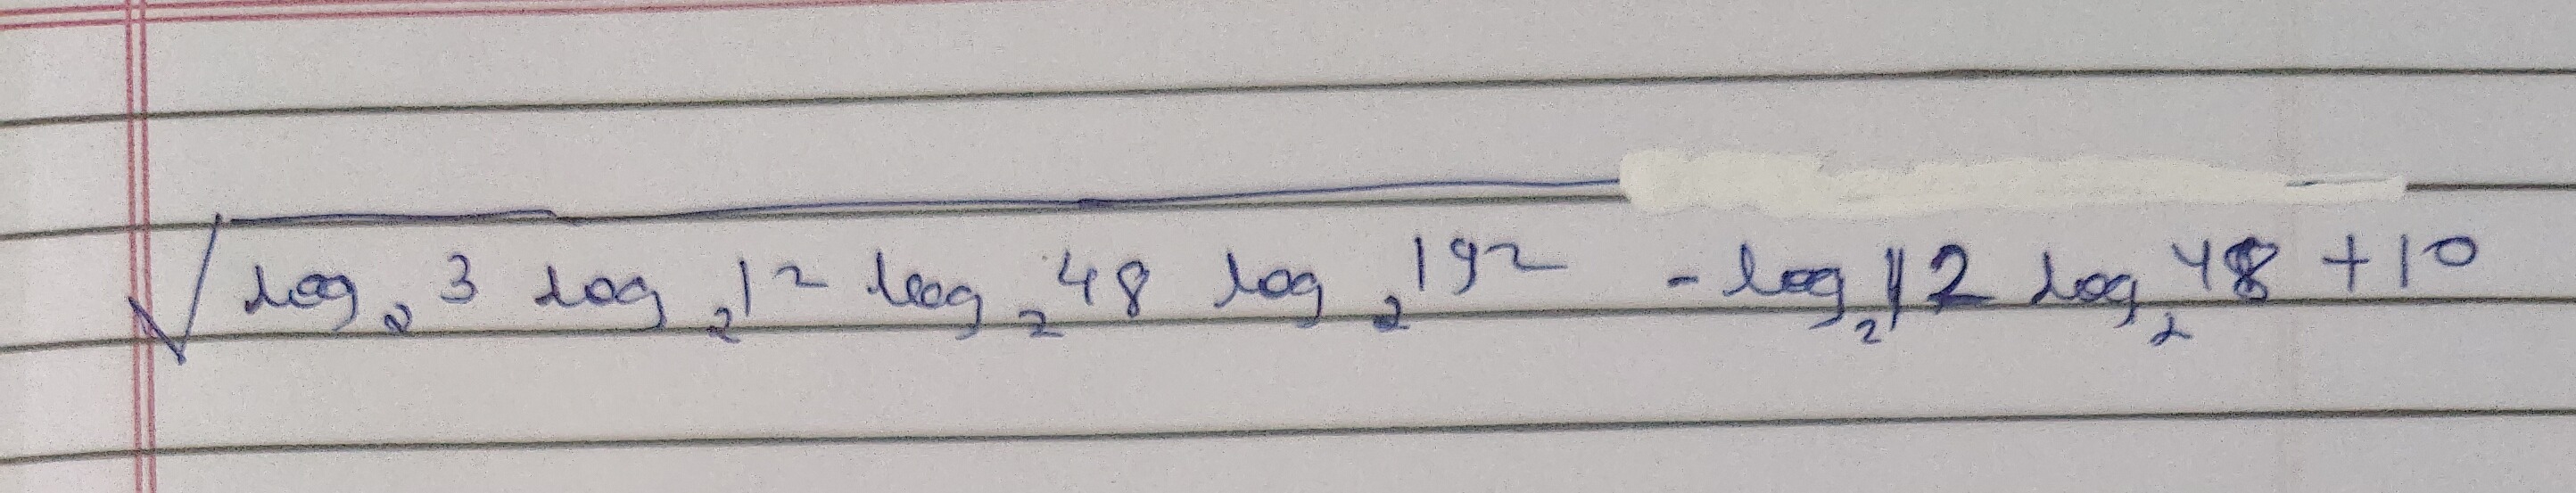 √(log₂ 3 log₂ 12 log₂ 48 log₂ 192) - log₂ 12 log₂ 48 + 10